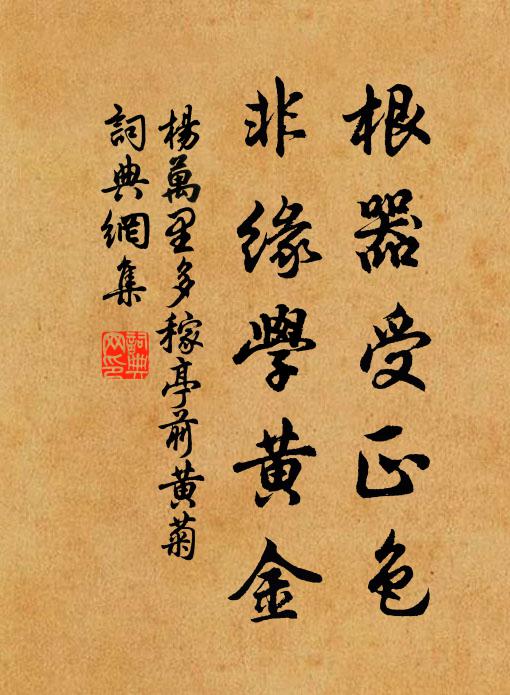 根器受正色
非緣學黃金
楊萬里多稼亭前黃菊
詞典網集
詞典網印